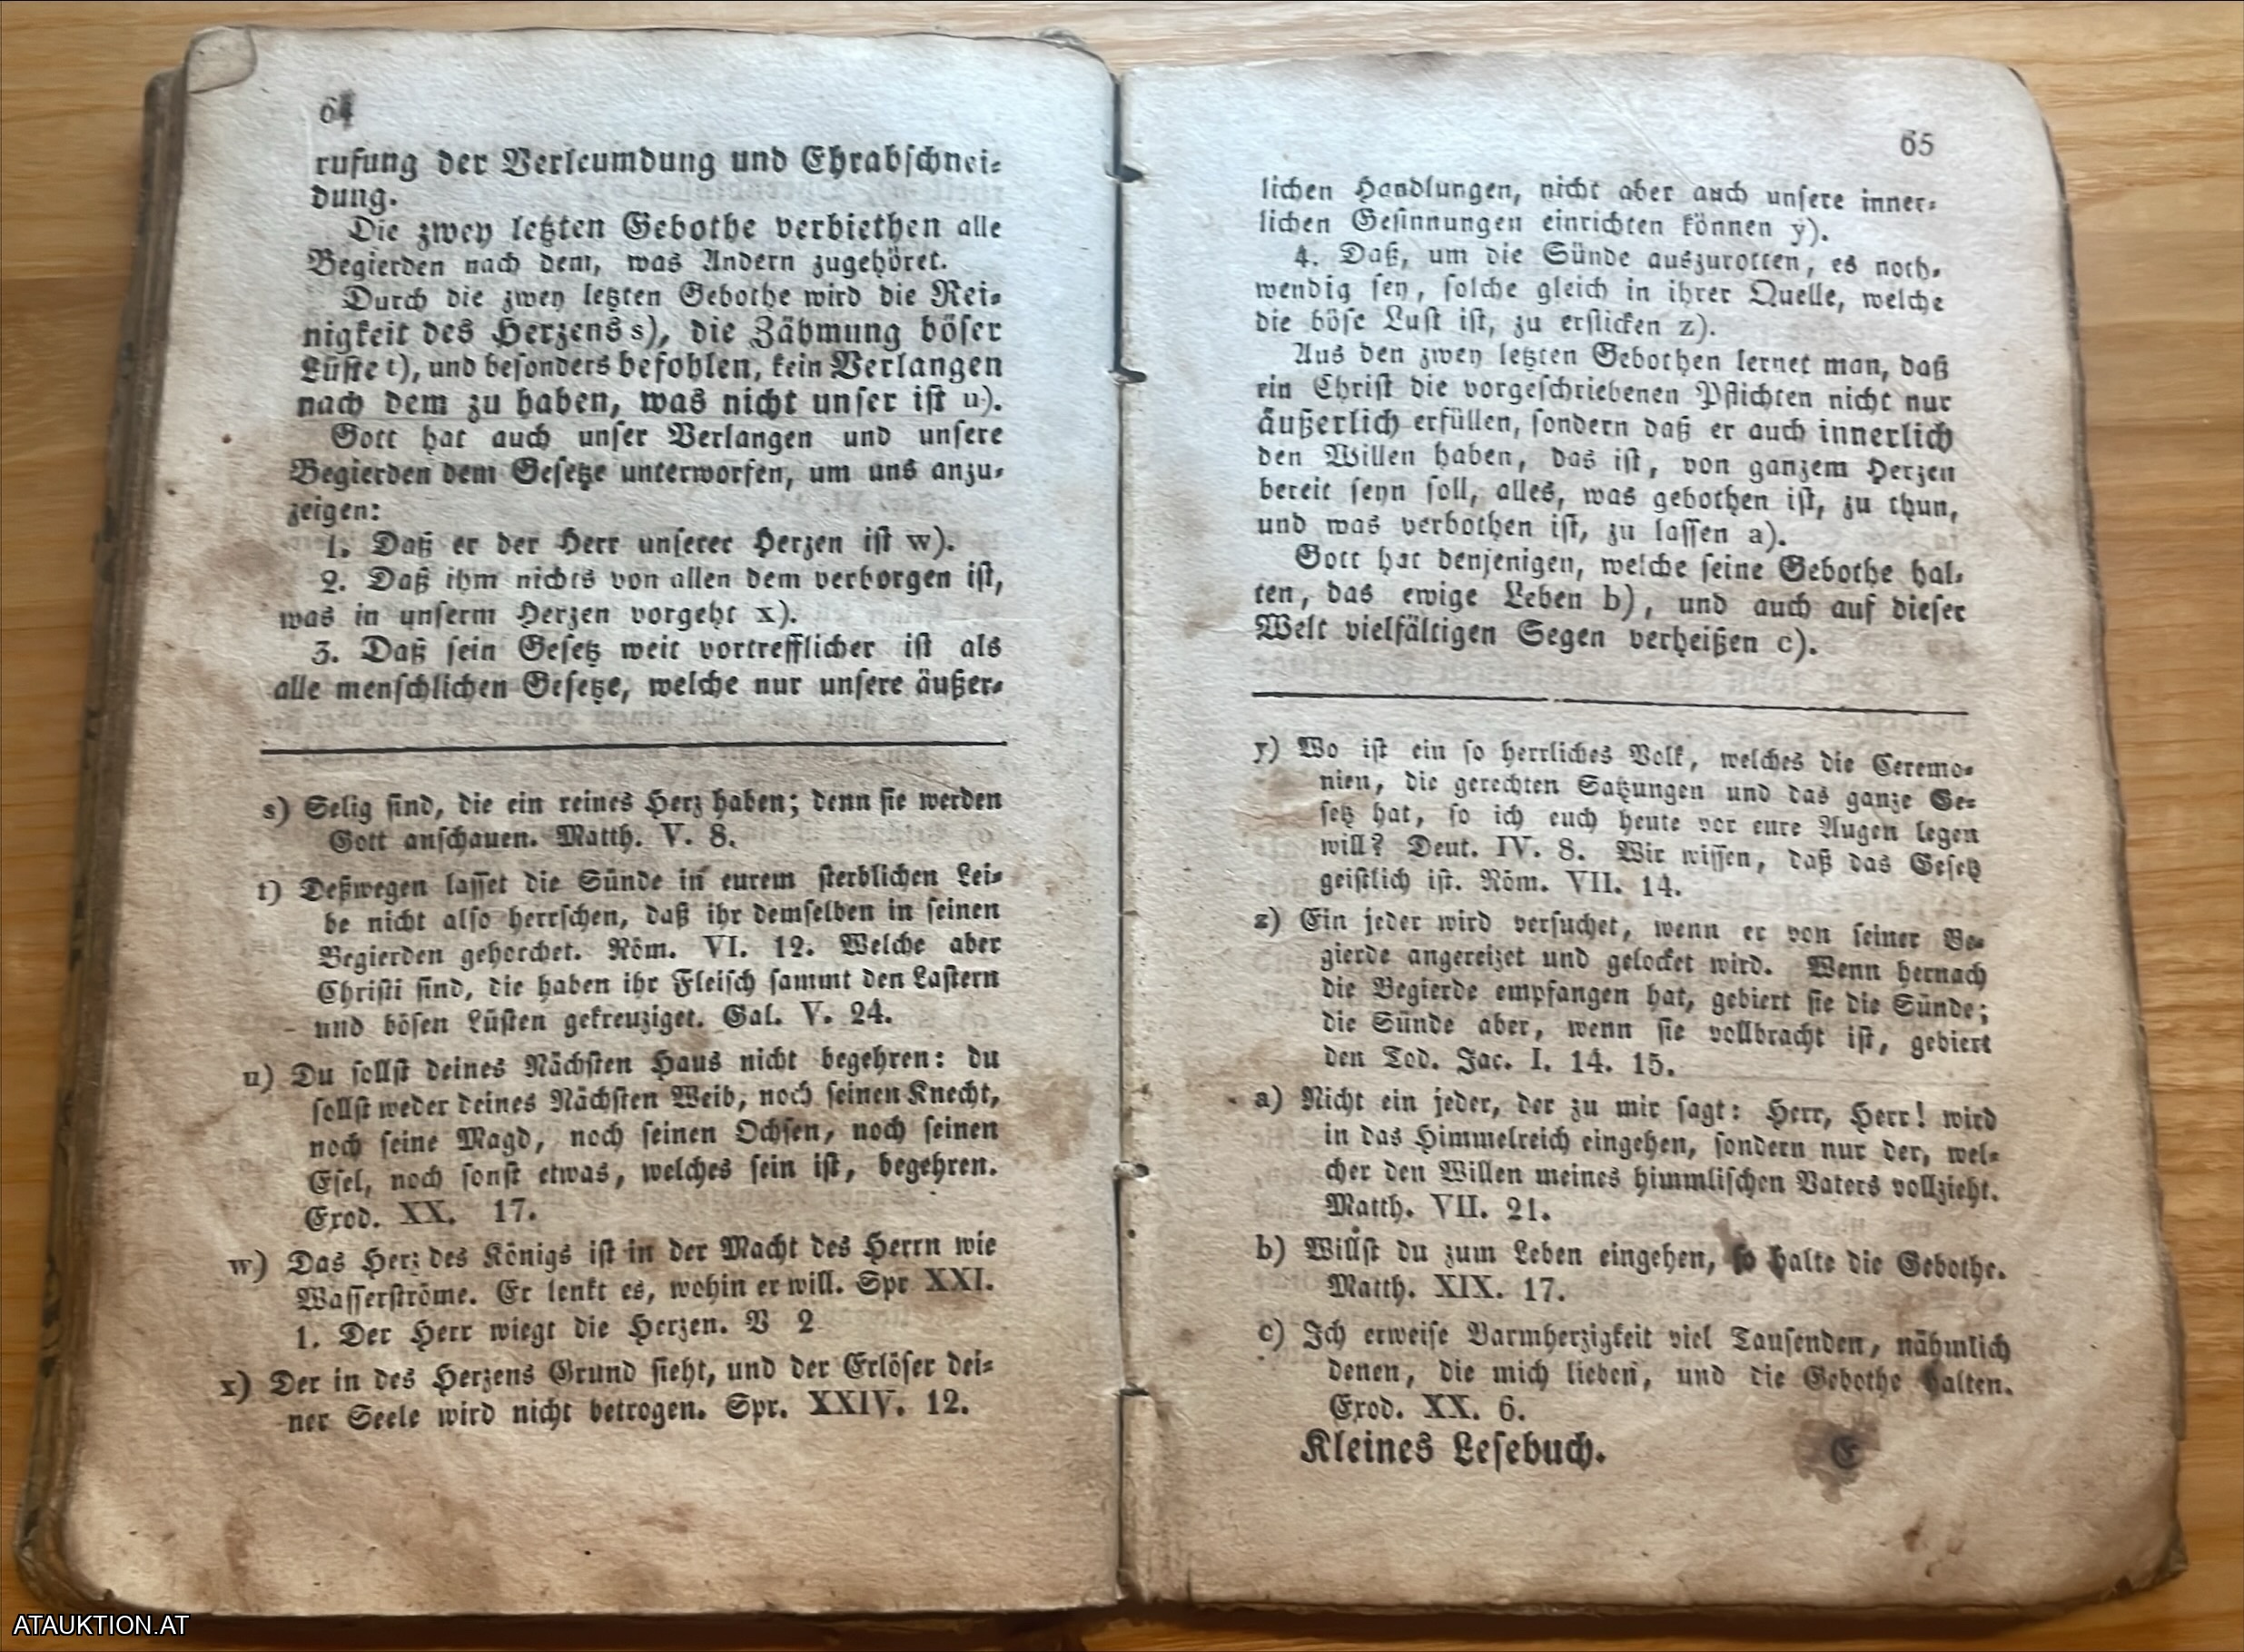 64
rufung der Verleumdung und Ehrabschnei⸗
dung.
Die zwey letzten Gebothe verbiethen alle
Begierden nach dem, was Andern zugehöret.
Durch die zwey letzten Gebothe wird die Rei⸗
nigkeit des Herzens s), die Zähmung böser
Lüste t), und besonders befohlen, kein Verlangen
nach dem zu haben, was nicht unser ist u).
Gott hat auch unser Verlangen und unsere
Begierden dem Gesetze unterworfen, um uns anzu⸗
zeigen:
1. Daß er der Herr unserer Herzen ist w).
2. Daß ihm nichts von allen dem verborgen ist,
was in unserm Herzen vorgeht x).
3. Daß sein Gesetz weit vortrefflicher ist als
alle menschlichen Gesetze, welche nur unsere äußer⸗
s) Selig sind, die ein reines Herz haben; denn sie werden
Gott anschauen. Matth. V. 8.
t) Deßwegen lasset die Sünde in eurem sterblichen Lei⸗
be nicht also herrschen, daß ihr demselben in seinen
Begierden gehorchet. Röm. VI. 12. Welche aber
Christi sind, die haben ihr Fleisch sammt den Lastern
und bösen Lüsten gekreuziget. Gal. V. 24.
u) Du sollst deines Nächsten Haus nicht begehren: du
sollst weder deines Nächsten Weib, noch seinen Knecht,
noch seine Magd, noch seinen Ochsen, noch seinen
Esel, noch sonst etwas, welches sein ist, begehren.
Exod. XX. 17.
w) Das Herz des Königs ist in der Macht des Herrn wie
Wasserströme. Er lenkt es, wohin er will. Spr XXI.
1. Der Herr wiegt die Herzen. V 2
x) Der in des Herzens Grund sieht, und der Erlöser dei⸗
ner Seele wird nicht betrogen. Spr. XXIV. 12.
65
lichen Handlungen, nicht aber auch unsere inner⸗
lichen Gesinnungen einrichten können y).
4. Daß, um die Sünde auszurotten, es noth⸗
wendig sey, solche gleich in ihrer Quelle, welche
die böse Lust ist, zu ersticken z).
Aus den zwey letzten Gebothen lernet man, daß
ein Christ die vorgeschriebenen Pflichten nicht nur
äußerlich erfüllen, sondern daß er auch innerlich
den Willen haben, das ist, von ganzem Herzen
bereit seyn soll, alles, was gebothen ist, zu thun,
und was verbothen ist, zu lassen a).
Gott hat denjenigen, welche seine Gebothe hal⸗
ten, das ewige Leben b), und auch auf dieser
Welt vielfältigen Segen verheißen c).
y) Wo ist ein so herrliches Volk, welches die Ceremo⸗
nien, die gerechten Satzungen und das ganze Ge⸗
setz hat, so ich euch heute vor eure Augen legen
will? Deut. IV. 8. Wir wissen, daß das Gesetz
geistlich ist. Röm. VII. 14.
z) Ein jeder wird versuchet, wenn er von seiner Be⸗
gierde angereizet und gelocket wird. Wenn hernach
die Begierde empfangen hat, gebiert sie die Sünde;
die Sünde aber, wenn sie vollbracht ist, gebiert
den Tod. Jac. I. 14. 15.
a) Nicht ein jeder, der zu mir sagt: Herr, Herr! wird
in das Himmelreich eingehen, sondern nur der, wel⸗
cher den Willen meines himmlischen Vaters vollzieht.
Matth. VII. 21.
b) Willst du zum Leben eingehen, so halte die Gebothe.
Matth. XIX. 17.
c) Ich erweise Barmherzigkeit viel Tausenden, nähmlich
denen, die mich lieben, und die Gebothe halten.
Exod. XX. 6.
Kleines Lesebuch. E
ATAUKTION.AT